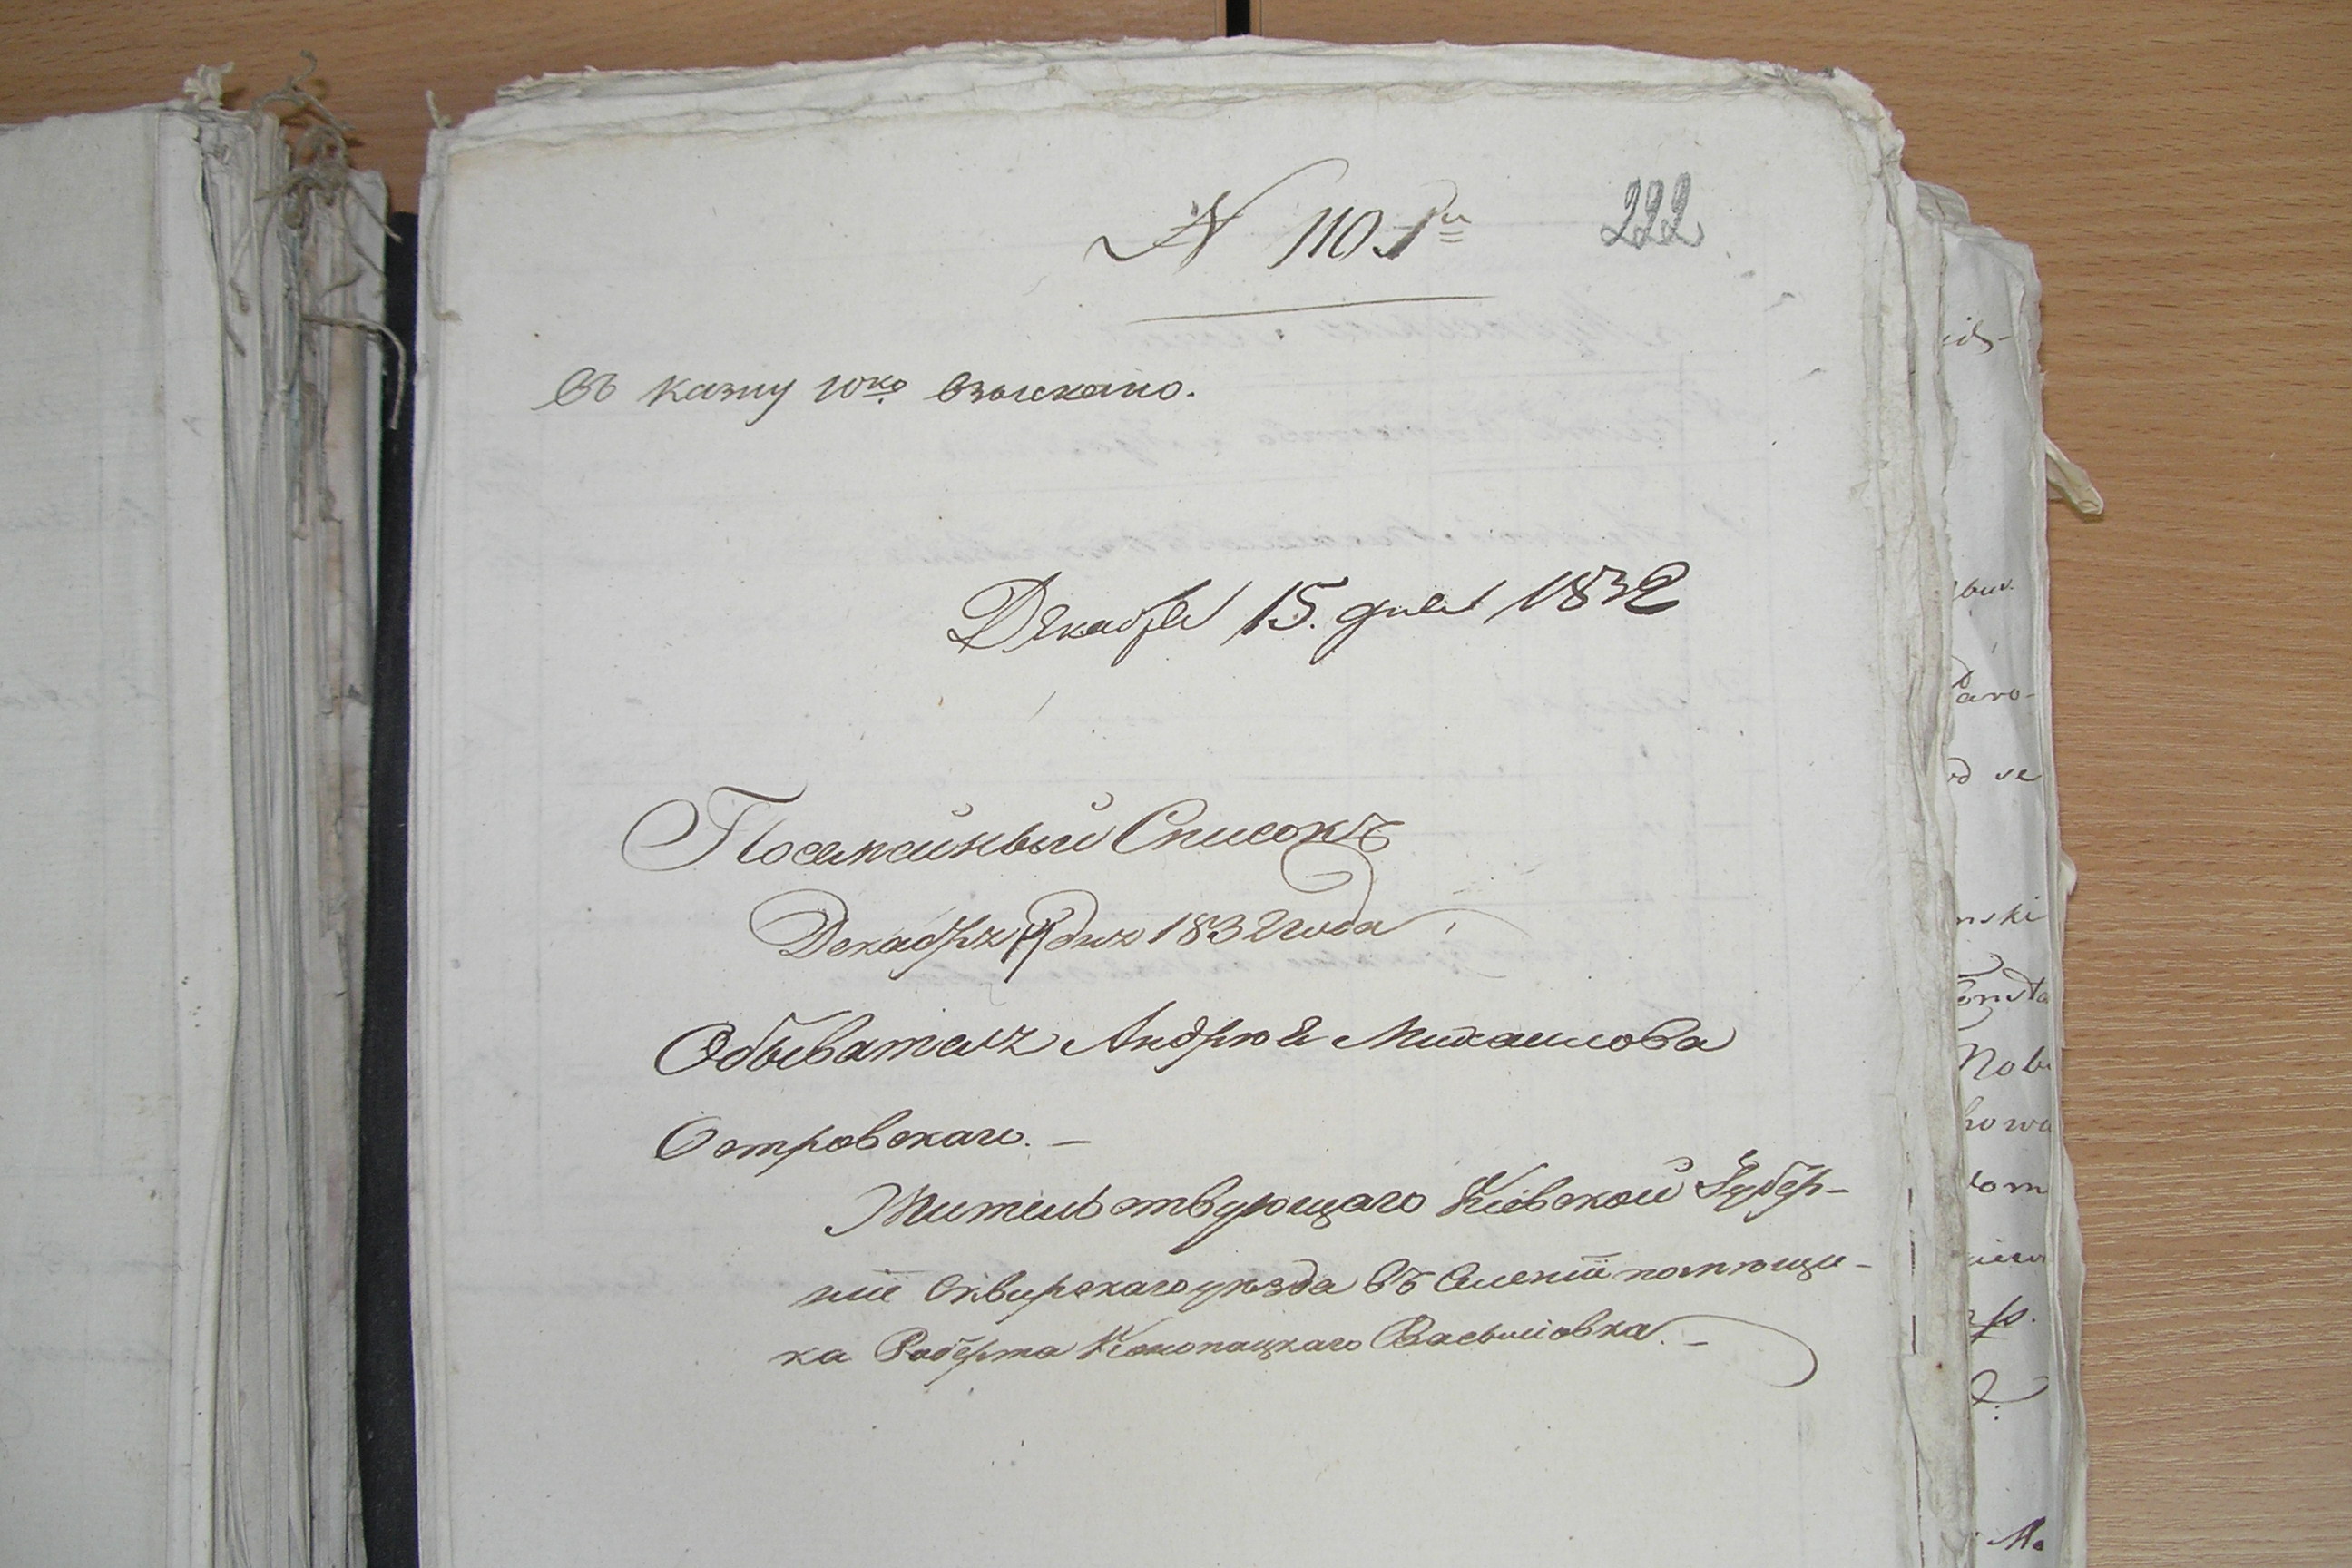 N 110
222
Въ казну 10ко взыскано.
Декабря 15. дня 1832
Посемейный Списокъ
Декабря дня 1832 года
Обывателя Андрюя Михаилова
Островскаго. —
Жительствующаго Кіевской Губер-
ніи Сквирскаго уѣзда въ Селеніи помѣщи-
ка Роберта Конопацкаго Васьлювка. —